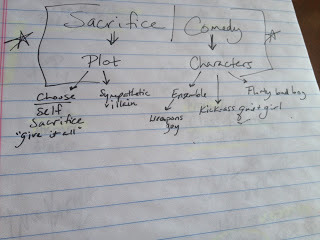 Sacrifice
Comedy
Plot
Characters
Choose
Self
Sacrifice
"give it all"
Sympathetic
villain
Ensemble
Weapons
Joy
Kickass quiet girl
Flirty bad boy